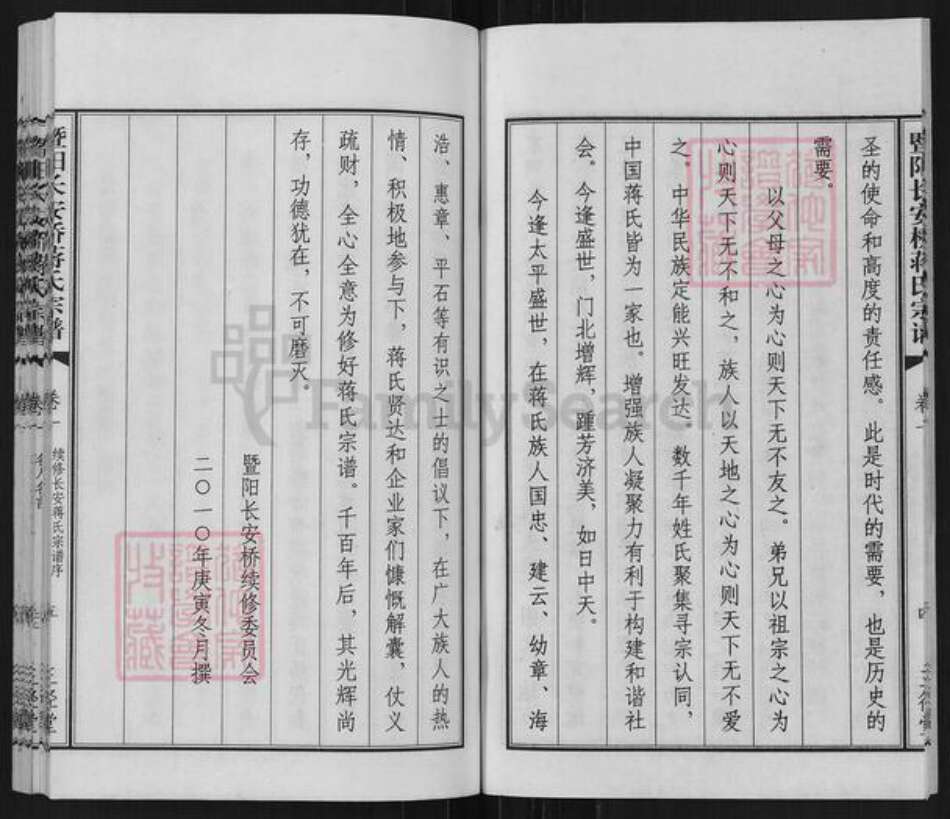 暨阳长安桥蒋氏宗谱
卷一
圣的使命和高度的责任感。此是时代的需要，也是历史的
需要。
以父母之心为心则天下无不友之。弟兄以祖宗之心为
心则天下无不和之，族人以天地之心为心则天下无不爱
之。中华民族定能兴旺发达，数千年姓氏聚集寻宗认同，
中国蒋氏皆为一家也。增强族人凝聚力有利于构建和谐社
会。今逢盛世，门北增辉，踵芳济美，如日中天。
今逢太平盛世，在蒋氏族人国忠、建云、幼章、海
浩、惠章、平石等有识之士的倡议下，在广大族人的热
情、积极地参与下，蒋氏贤达和企业家们慷慨解囊，仗义
疏财，全心全意为修好蒋氏宗谱。千百年后，其光辉尚
存，功德犹在，不可磨灭。
暨阳长安桥续修委员会
二〇一〇年庚寅冬月撰
暨阳长安桥蒋氏宗谱
卷一
续修长安蒋氏宗谱序
五
三径堂
FamilySearch